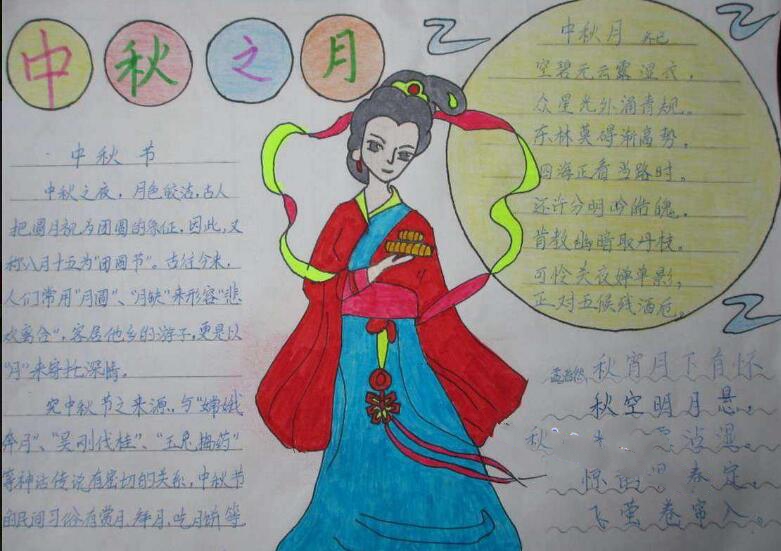 中秋之月
中秋节
中秋之夜，月色皎洁，古人
把圆月视为团圆的象征，因此，又
称八月十五为"团圆节"。古往今来，
人们常用"月圆"、"月缺"来形容"悲
欢离合"，客居他乡的游子，更是以
"月"来寄托深情。
究中秋节之来源，与"嫦娥
奔月"、"吴刚伐桂"、"玉兔捣药"
等神话传说有密切的关系，中秋节
的民间习俗有赏月、拜月、吃月饼等
中秋月
空碧无云露湿衣，
众星光外涌青规。
东林莫碍渐高势，
四海正看当路时。
还许分明吟皓魄，
肯教幽暗取丹枝。
可怜关夜婵单影，
正对五候残酒卮。
孟浩然 秋宵月下有怀
秋空明月悬，
秋 沾湿。
惊 定，
飞萤卷帘入。